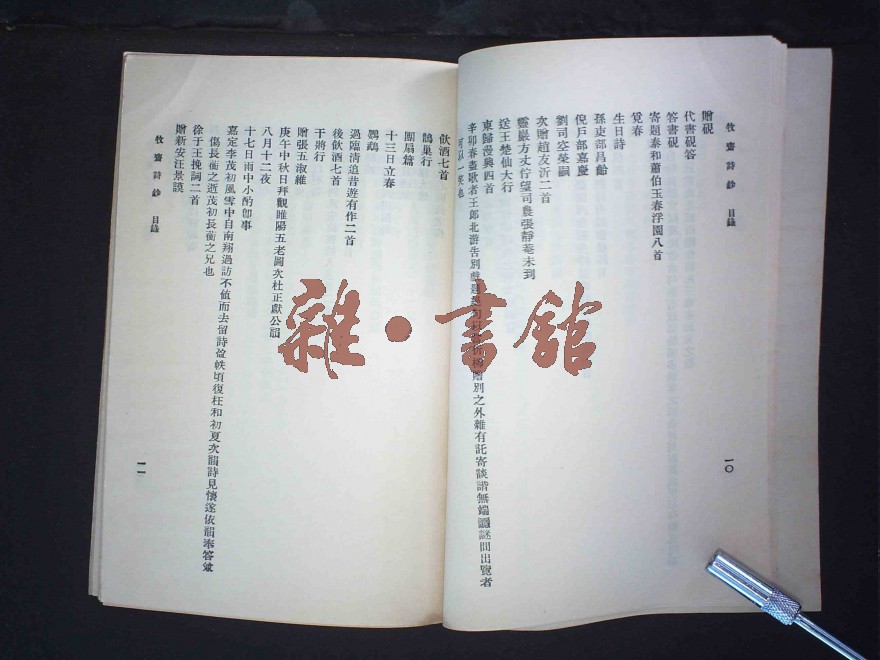 牧齋詩鈔 目錄
贈硯
代書硯答
答書硯
寄題泰和蕭伯玉春浮園八首
覓春
生日詩
孫吏部昌齡
倪戶部嘉慶
劉司空榮嗣
次贈趙友沂二首
靈巖方丈佇望司農張靜菴未到
送王楚仙大行
東歸漫興四首
辛卯春盡歌者王郎北游告別戲題 贈別之外雜有託寄談諧無端讔謎間出覽者
可以一笑也
一〇
飲酒七首
鵲巢行
團扇篇
十三日立春
鸚鵡
過臨清追昔遊有作二首
後飲酒七首
干將行
贈張五淑維
庚午中秋日拜觀睢陽五老圖次杜正獻公韻
八月十二夜
十七日雨中小酌卽事
嘉定李茂初風雪中自南翔過訪不値而去留詩盈帙頃復枉和初夏次韻詩見懷遂依韻奉答兼
傷長蘅之逝茂初長蘅之兄也
徐于王挽詞二首
贈新安汪景謨
牧齋詩鈔 目錄
一一
雜·書館